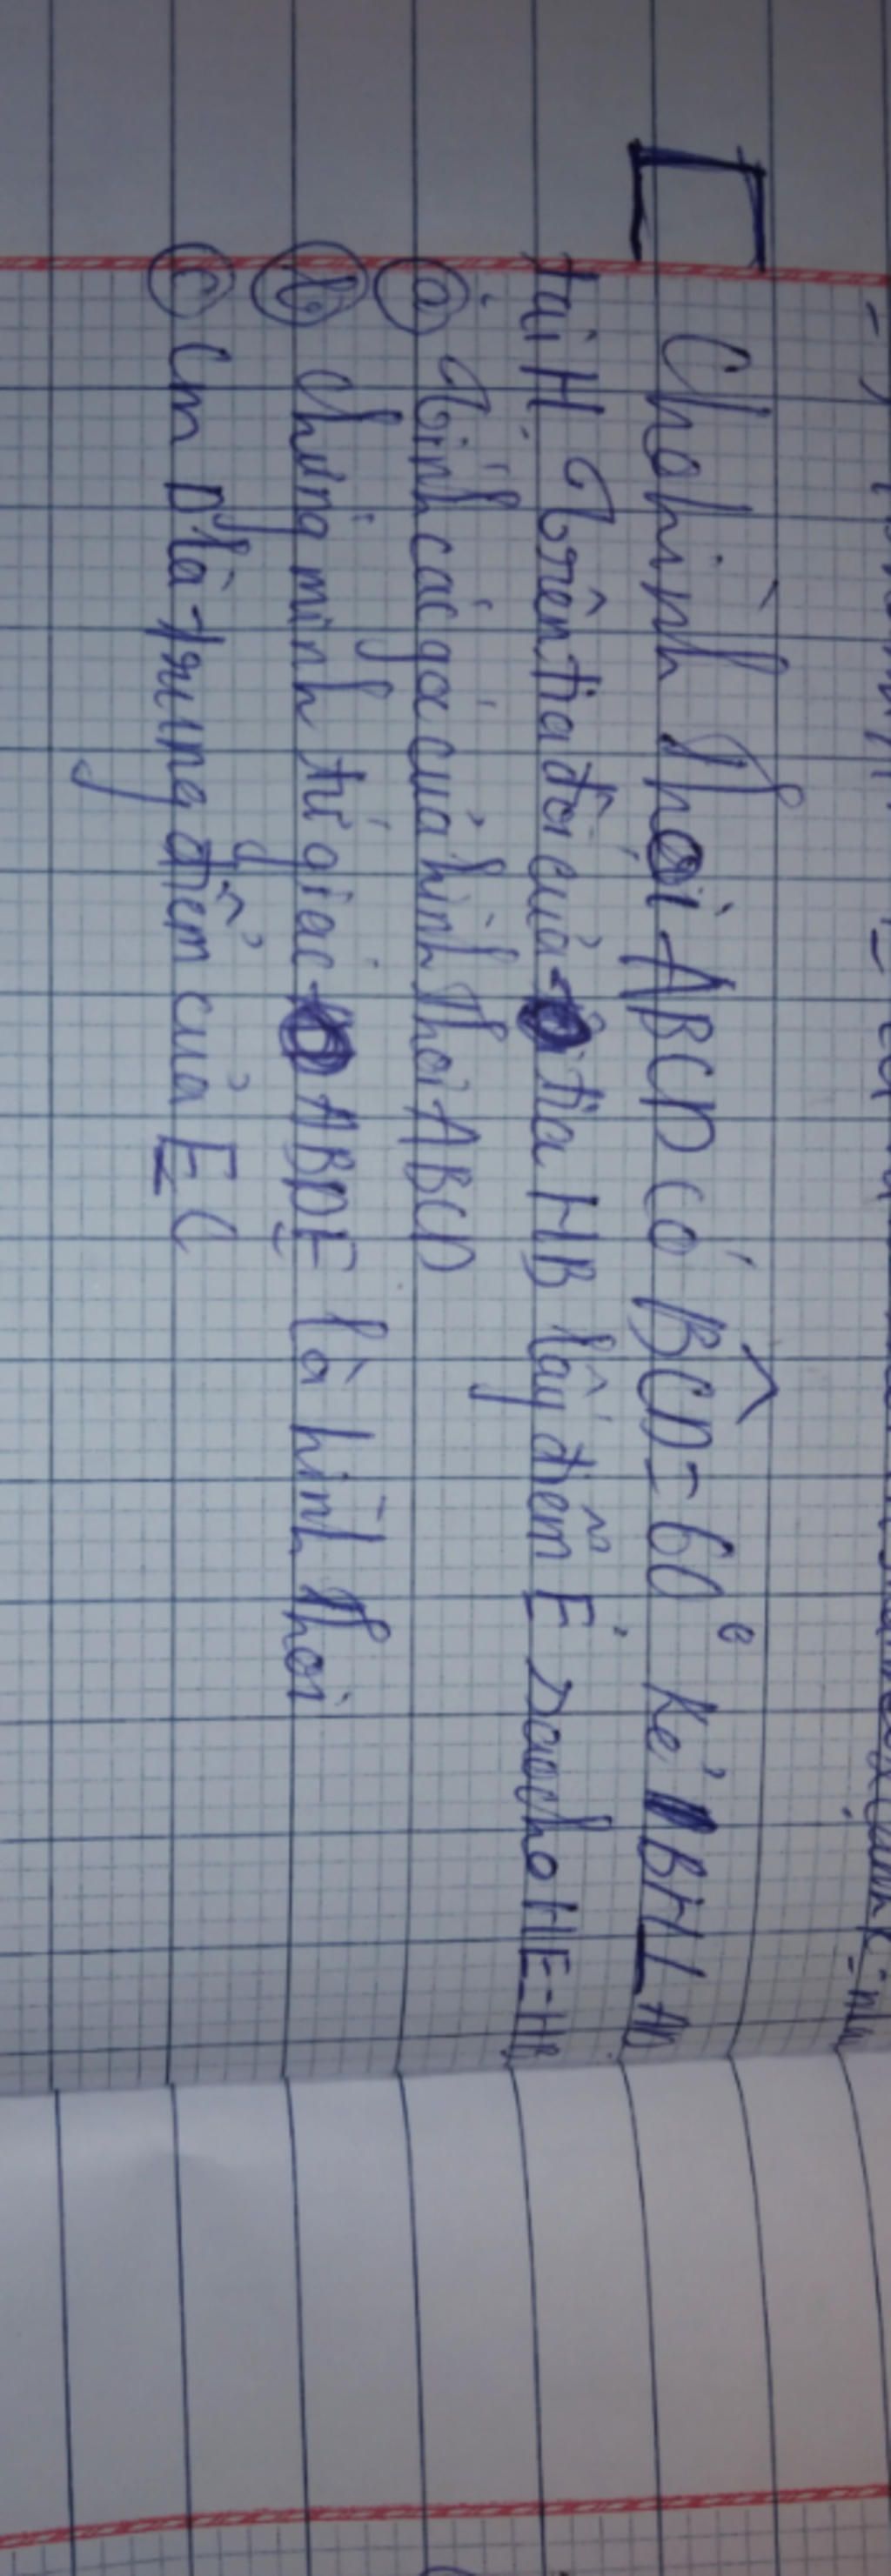 Cho hình thoi ABCD có BCD = 60° kẻ BH ⊥ AD
tại H. Trên tia đối của tia HB lấy điểm E sao cho HE = HB
a Tính các góc của hình thoi ABCD
b Chứng minh tứ giác ABDE là hình thoi
c Cm D là trung điểm của EC